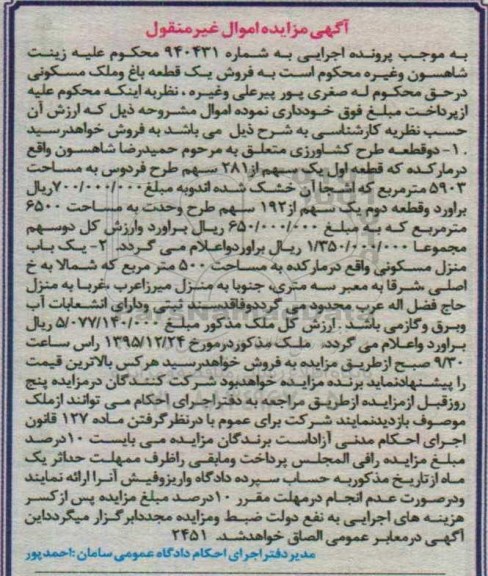 آگهی مزایده اموال غیرمنقول
به موجب پرونده اجرایی به شماره ۹۴۰۴۳۱ محکوم علیه زینت
شاهسون وغیره محکوم است به فروش یک قطعه باغ وملک مسکونی
درحق محکوم له صغری پور پیرعلی وغیره ، نظربه اینکه محکوم علیه
ازپرداخت مبلغ فوق خودداری نموده اموال مشروحه ذیل که ارزش آن
حسب نظریه کارشناسی به شرح ذیل می باشد به فروش خواهدرسید
.۱- دوقطعه طرح کشاورزی متعلق به مرحوم حمیدرضا شاهسون واقع
درمارکده که قطعه اول یک سهم از۲۸۱ سهم طرح فردوس به مساحت
۵۹۰۳ مترمربع که اشجار آن خشک شده اندوبه مبلغ ۷۰۰/۰۰۰/۰۰۰ریال
براورد وقطعه دوم یک سهم از۱۹۲ سهم طرح وحدت به مساحت ۶۵۰۰
مترمربع که به مبلغ ۶۵۰/۰۰۰/۰۰۰ ریال براورد وارزش کل دوسهم
مجموعا ۱/۳۵۰/۰۰۰/۰۰۰ ریال براوردواعلام می گردد. ۲- یک باب
منزل مسکونی واقع درمارکده به مساحت ۵۰۰ متر مربع که شمالا به خ
اصلی ،شرقا به معبر سه متری، جنوبا به منزل میرزاعرب ،غربا به منزل
حاج فضل اله عرب محدود می گرددوفاقدسند ثبتی ودارای انشعابات آب
وبرق وگازمی باشد . ارزش کل ملک مذکور مبلغ ۵/۰۷۷/۱۴۰/۰۰۰ ریال
براورد واعلام می گردد. ملک مذکوردرمورخ ۱۳۹۵/۱۲/۲۴ راس ساعت
۹/۳۰ صبح ازطریق مزایده به فروش خواهدرسید هرکس بالاترین قیمت
را پیشنهادنماید برنده مزایده خواهدبود شرکت کنندگان درمزایده پنج
روزقبل ازمزایده ازطریق مراجعه به دفتراجرای احکام می توانند ازملک
موصوف بازدیدنمایند شرکت برای عموم با درنظرگرفتن ماده ۱۲۷ قانون
اجرای احکام مدنی آزاداست برندگان مزایده می بایست ۱۰درصد
مبلغ مزایده رافی المجلس پرداخت ومابقی راظرف ممهلت حداثر یک
ماه ازتاریخ مذکوربه حساب سپرده دادگاه واریزوفیش آنرا ارائه نمایند
ودرصورت عدم انجام درمهلت مقرر ۱۰درصد مبلغ مزایده پس ازکسر
هزینه های اجرایی به نفع دولت ضبط ومزایده مجددابرگزار میگردداین
آگهی درمعابر عمومی الصاق خواهدشد. ۲۴۵۱
مدیردفتراجرای احکام دادگاه عمومی سامان :احمدپور